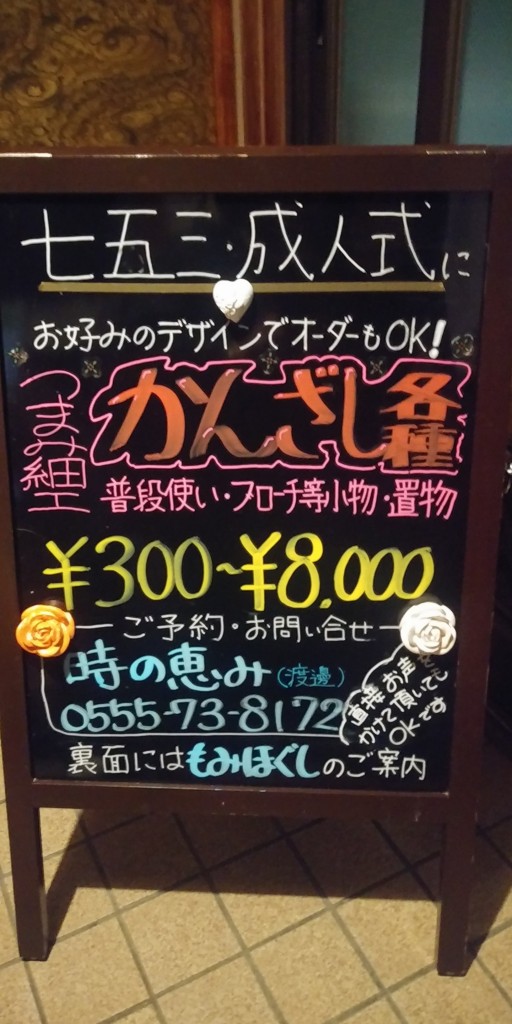 七五三・成人式に
お好みのデザインでオーダーもOK!
つまみ細工
かんざし各種
普段使い・ブローチ等小物・置物
¥300~¥8,000
ご予約・お問い合せ
時の恵み(渡邊)
0555-73-8172
直接お声を
かけて頂いても
OKです
裏面にはもみほぐしのご案内